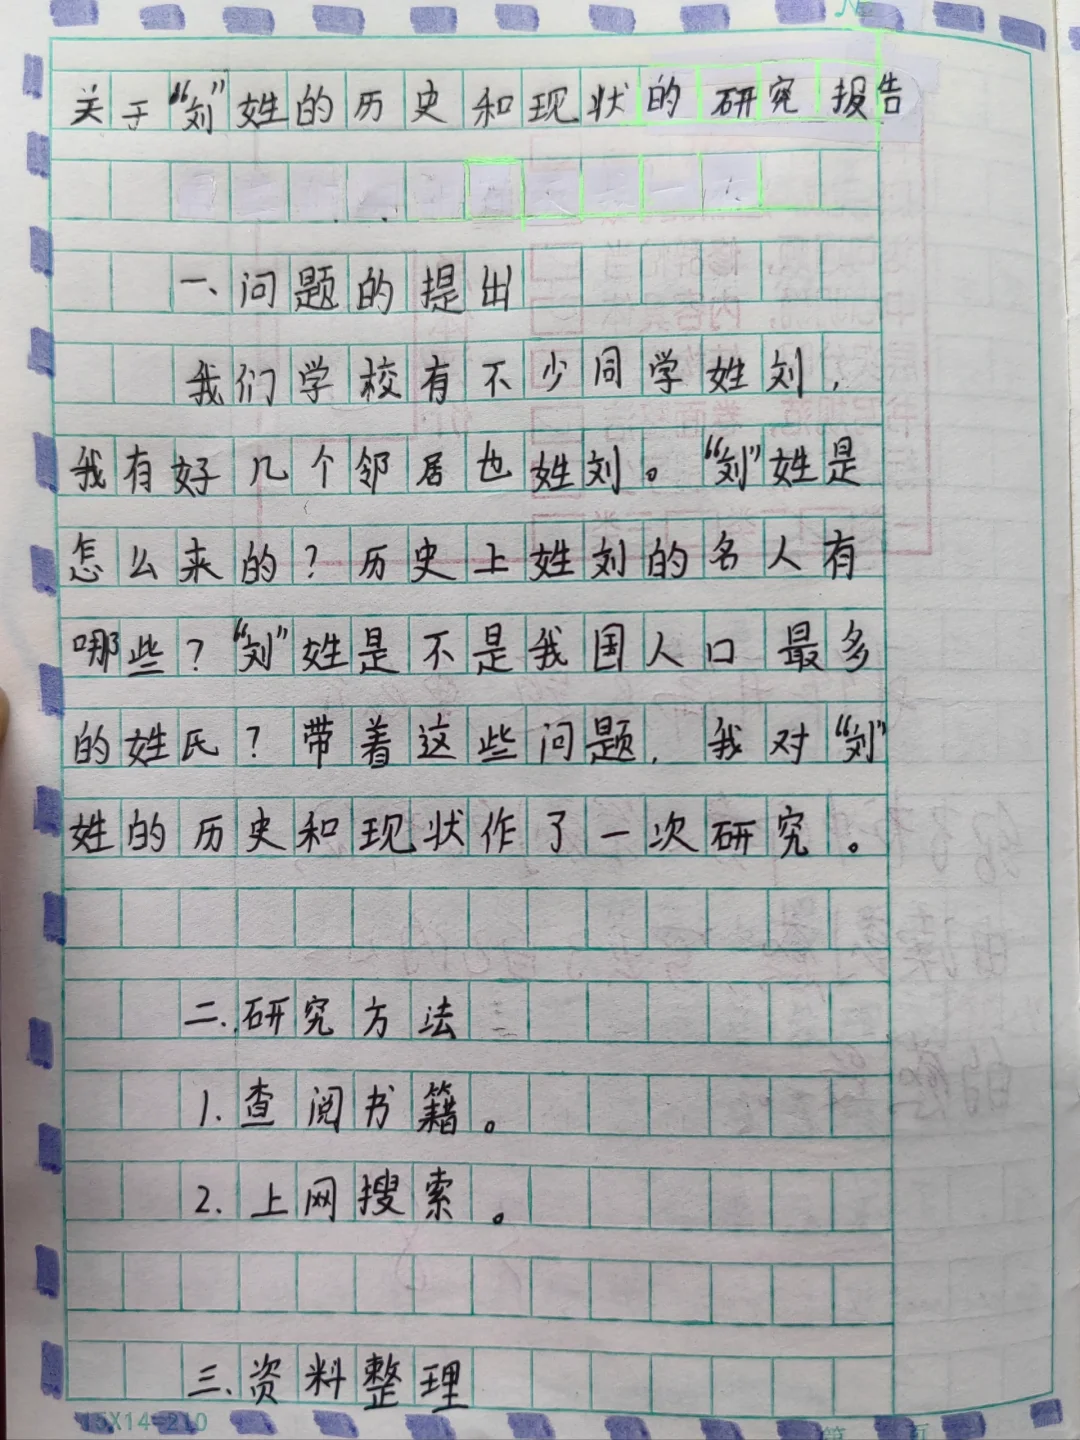 关于“刘”姓的历史和现状的研究报告
一、问题的提出
我们学校有不少同学姓刘，
我有好几个邻居也姓刘。“刘”姓是
怎么来的？历史上姓刘的名人有
哪些？“刘”姓是不是我国人口最多
的姓氏？带着这些问题，我对“刘”
姓的历史和现状作了一次研究。
二、研究方法
1.查阅书籍。
2.上网搜索。
三、资料整理
15X14=210
第 页